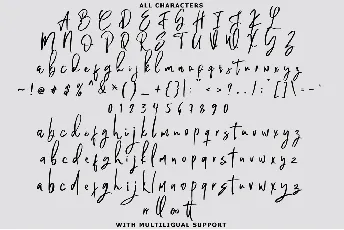 ALL CHARACTERS
A B C D E F G H I J K L
M N O P Q R S T U V W X Y Z
a b c d e f g h i j k l m n o p q r s t u v w x y z
~ ! @ # $ % ^ & * ( ) _ + { } | : " < > ?
0 1 2 3 4 5 6 7 8 9 0
a b c d e f g h i j k l m n o p q r s t u v w x y z
a b c d e f g h i j k l m n o p q r s t u v w x y z
a b c d e f g h i j k l m n o p q r s t u v w x y z
WITH MULTILIGUAL SUPPORT